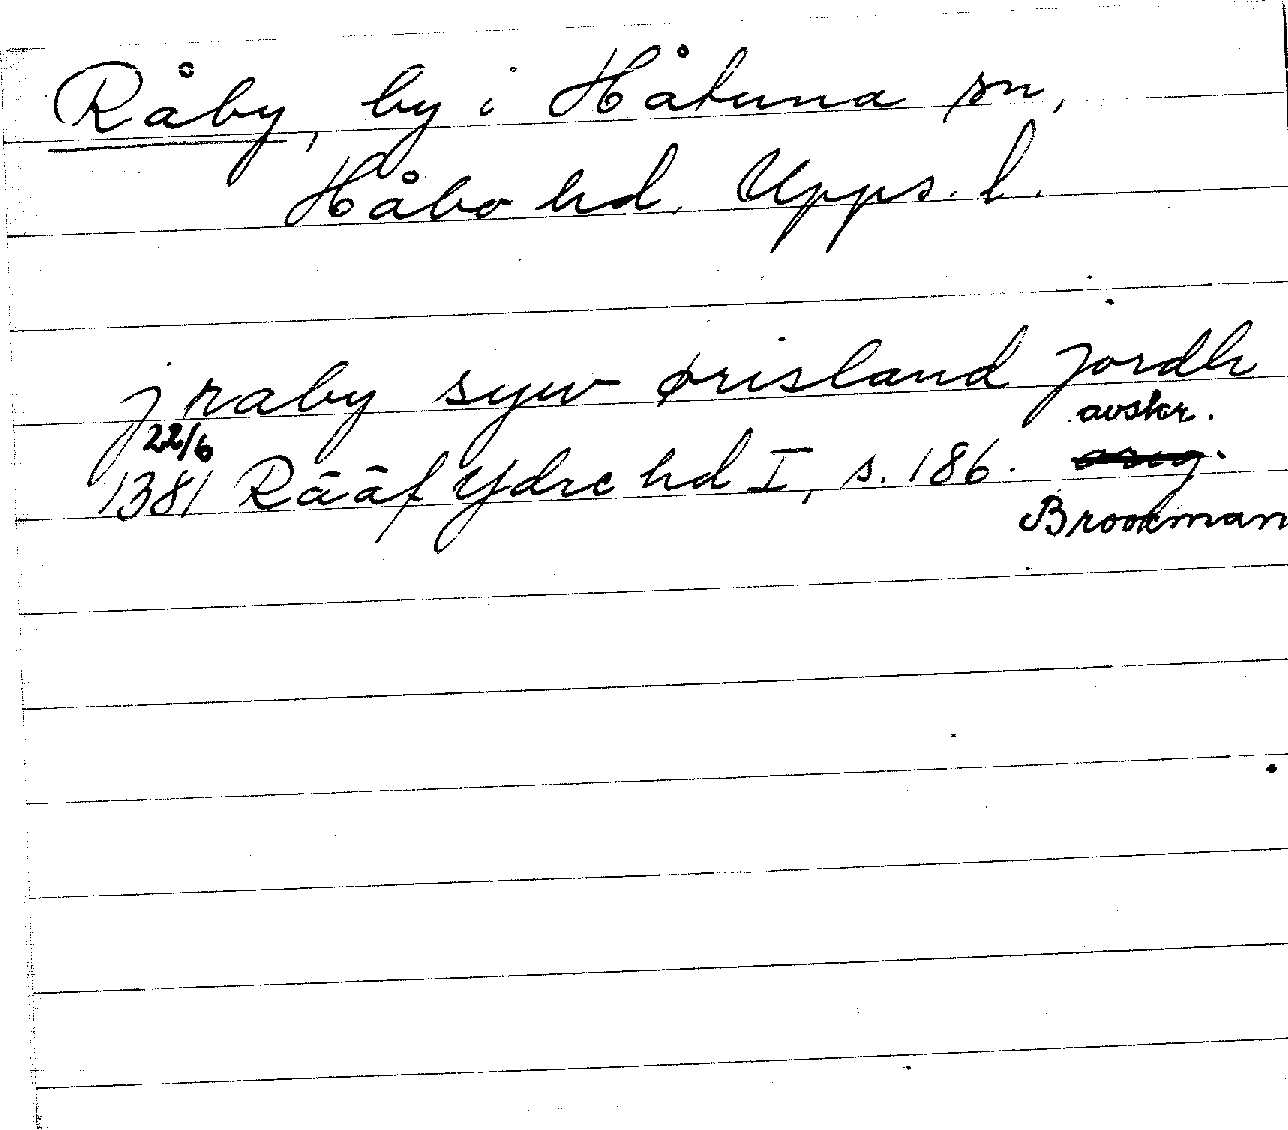 Råby, by i Håtuna sn,
Håbo hd. Upps. l.
j raby syw ørisland jordh
22/6 avskr.
1381 Rääf Ydre hd I, s. 186.
Brookman